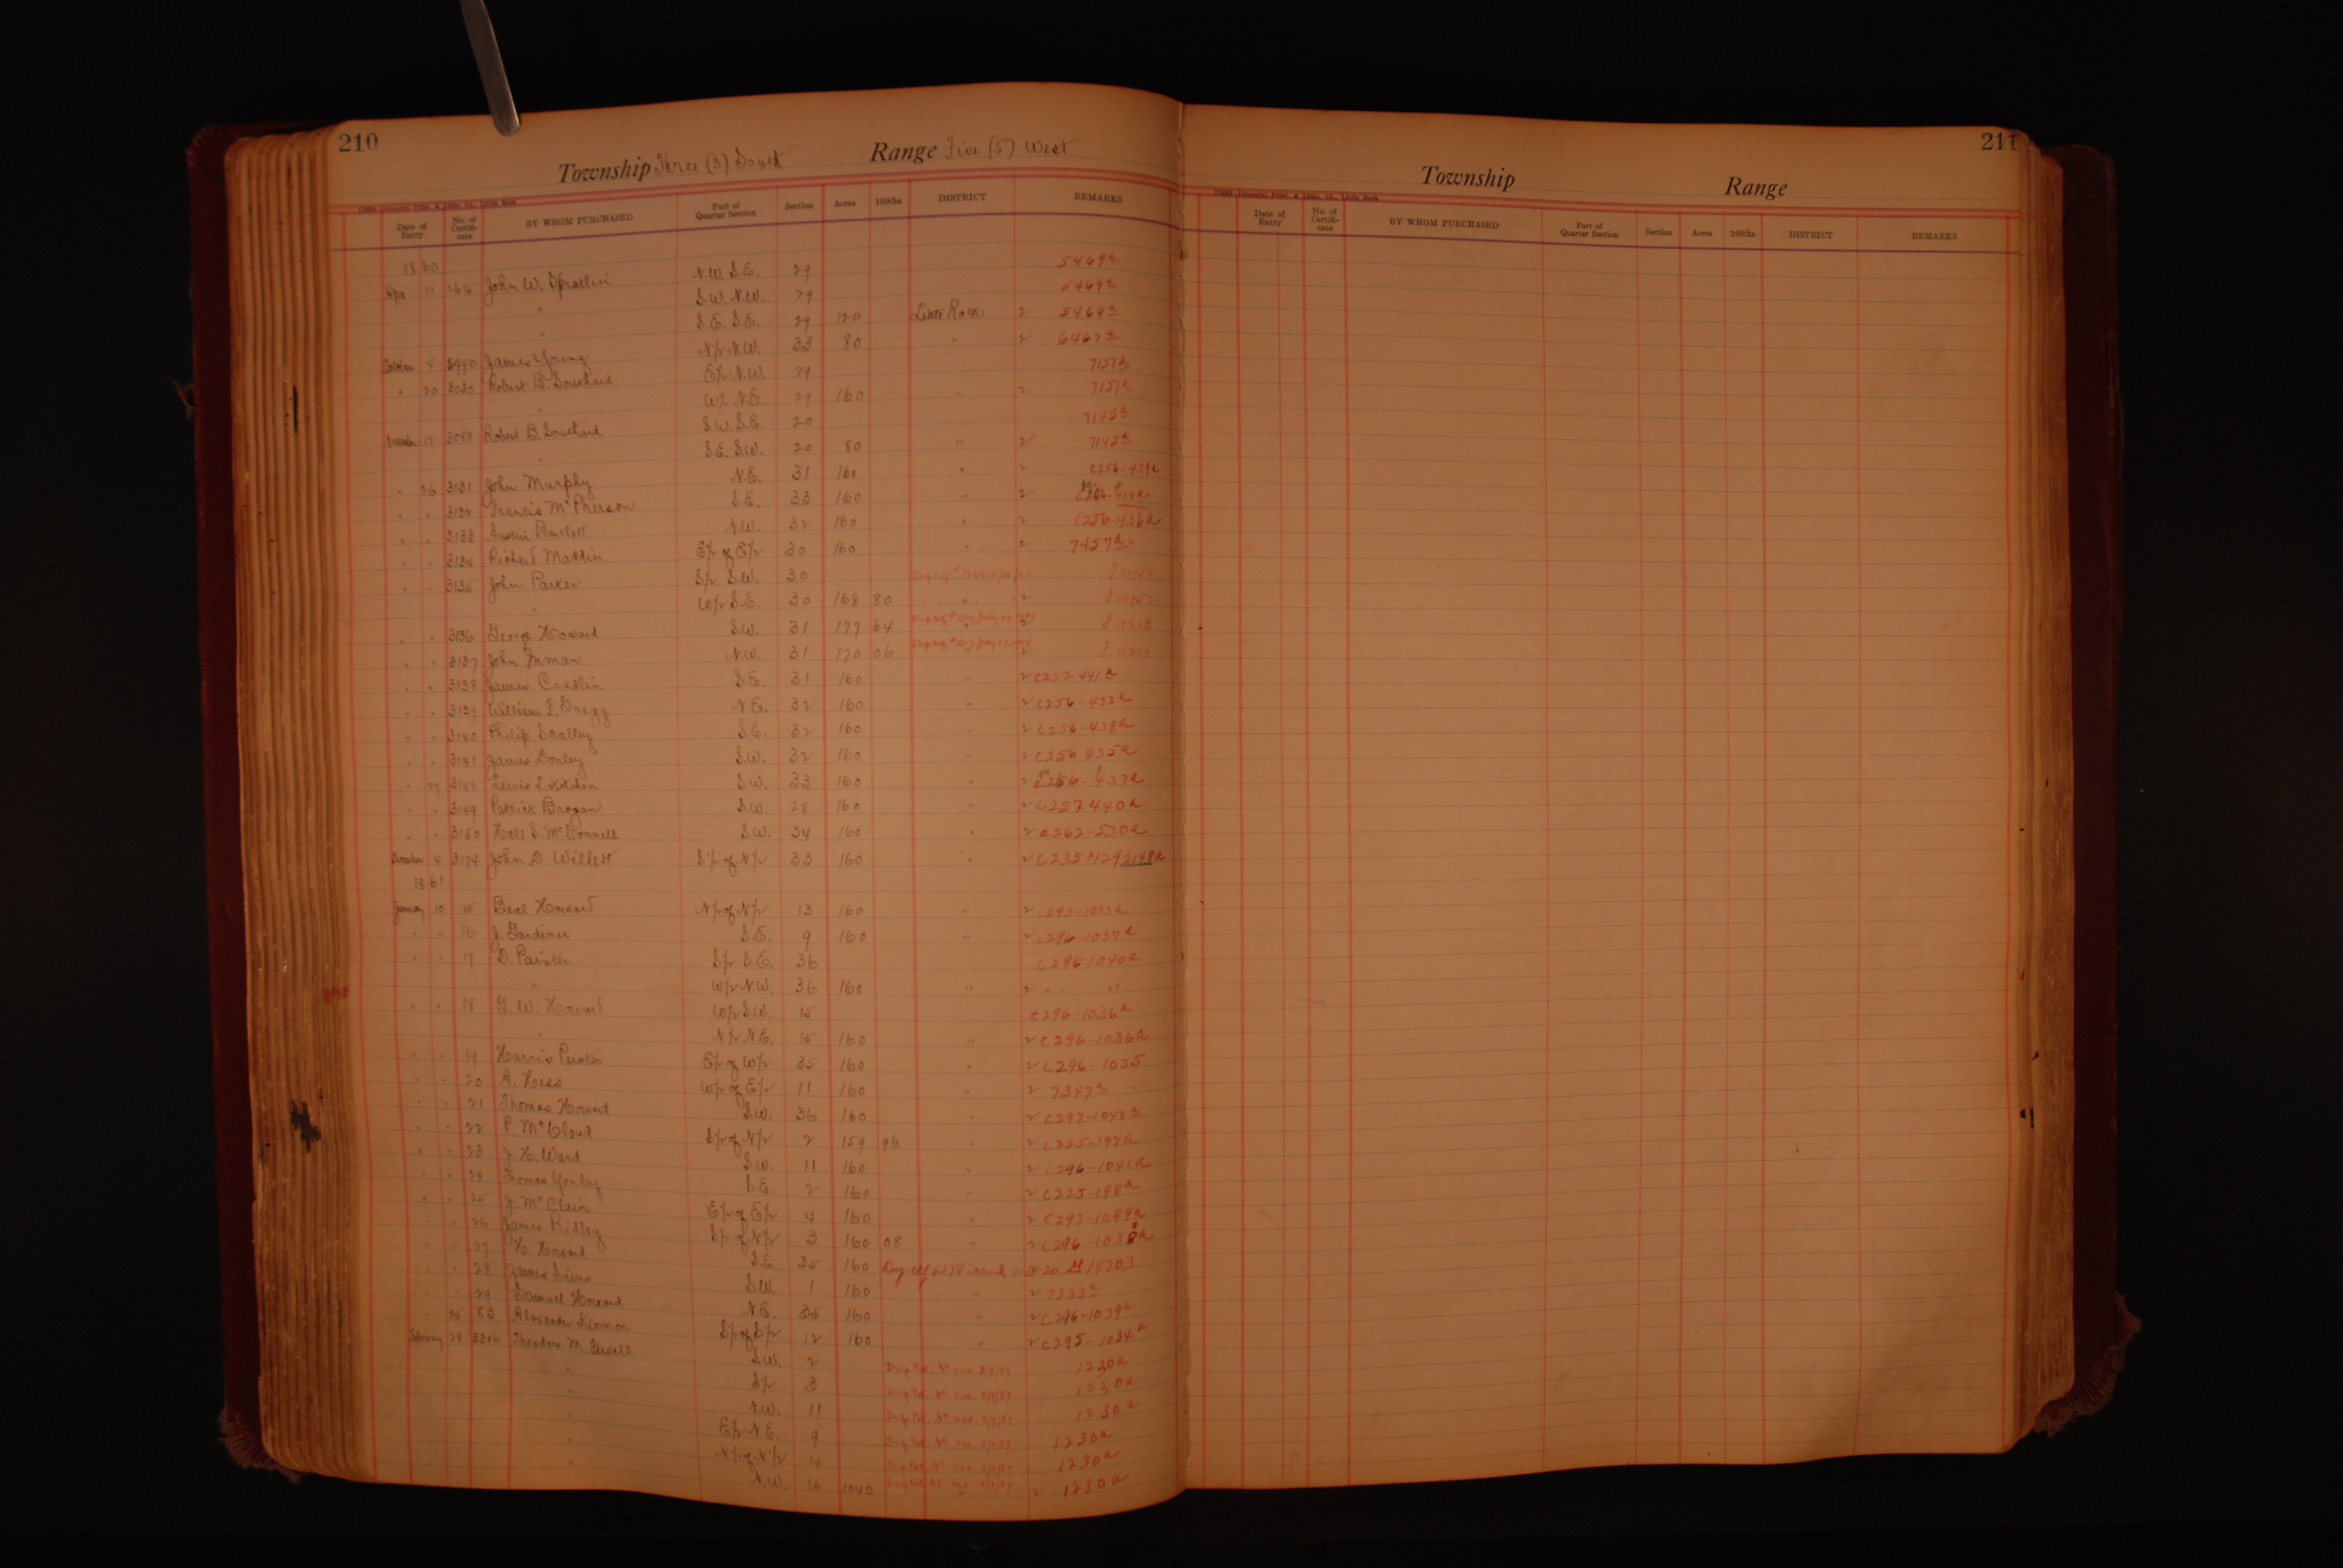 210
Township Three (3) South Range Five (5) West
Date of Entry No. of Certifi-cate BY WHOM PURCHASED Part of Quarter Section Section Acres 100ths DISTRICT REMARKS
1860
Apr 11 264 John W. Spratlin N.W. S.E. 29 5469a
" S.W. N.W. 29 5469a
" S.E. S.E. 29 120 Little Rock 2 5469a
October 4 2990 James Young N/2 N.W. 33 80 " 2 6467a
" 20 3030 Robert B. Southard E/2 N.W. 29 7151a
" W/2 N.E. 29 160 " 2 7151a
November 12 3088 Robert B. Southard S.W. S.E. 20 7145a
" S.E. S.W. 20 80 " 2 7145a
" 26 3131 John Murphy N.E. 31 160 " 2 C256-439a
" " 3132 Francis McPherson S.E. 33 160 " 2
" " 3133 Austin Bartlett N.W. 32 160 " 2 C256-436a
" " 3134 Richard Maddin E/2 of E/2 30 160 " 2 7457a
" " 3135 John Parker S/2 S.W. 30
" W/2 S.E. 30 168 80 2
" " 3136 George Howard S.W. 31 177 64
" " 3137 John Inman N.W. 31 170 06
" " 3138 James Creslin S.E. 31 160 " 2 C257-441a
" " 3139 William F. Gregg N.E. 32 160 " 2 C256-433a
" " 3140 Philip Scalley S.E. 32 160 " 2 C256-438a
" " 3141 James Donley S.W. 32 160 " 2 C256 435a
" 27 3148 Lewis L. Kitchen S.W. 33 160 " 2 C256-437a
" " 3149 Patrick Brogan S.W. 28 160 " 2 C257 440a
" " 3150 Hall S. McConnell S.W. 34 160 " 2 C262-530a
December 4 3174 John D. Willett S/2 of N/2 33 160 " 2
1861
January 10 15 Beal Howard N/2 of N/2 13 160 " 2 C295-1033a
" " 16 J. Gardiner S.E. 9 160 " 2 C296-1037a
" " 7 D. Painter S/2 S.E. 36 C296-1040a
" W/2 N.W. 36 160 " 2 " " "
" " 18 G. W. Howard W/2 S.W. 15 C296-1036a
" N/2 N.E. 15 160 " 2 C296-1036a
" " 19 Harris Painter E/2 of W/2 35 160 " 2 C296-1035
" " 20 A. Hess W/2 of E/2 11 160 " 2 7347a
" " 21 Thomas Howard S.W. 36 160 " 2 C297-1048a
" " 22 P. McCloud S/2 of N/2 2 159 96 " 2 C225-197a
" " 23 J. H. Ward S.W. 11 160 " 2 C296-1041a
" " 24 Thomas Yonley S.E. 2 160 " 2 C225-198a
" " 25 J. McClain E/2 of E/2 4 160 " 2 C297-1049a
" " 26 James Ridley S/2 of N/2 3 160 08 " 2 C296-1038a
" " 27 H. Howard S.E. 35 160 14703
" " 28 James Sims S.W. 1 160 " 2 7333a
" " 29 Samuel Howard N.E. 35 160 " 2 C296-1039a
" 25 83 Alexander Kinnon S/2 of S/2 12 160 " 2 C295-1034a
February 28 3306 Theodore M. S.W. 2 1230a
" S/2 3 1230a
" N.W. 11 1230a
" E/2 N.E. 9 1230a
" N/2 of N/2 14 1230a
N.W. 15 1040 2 1230a
211
Township Range
Date of Entry No. of Certifi-cate BY WHOM PURCHASED Part of Quarter Section Section Acres 100ths DISTRICT REMARKS